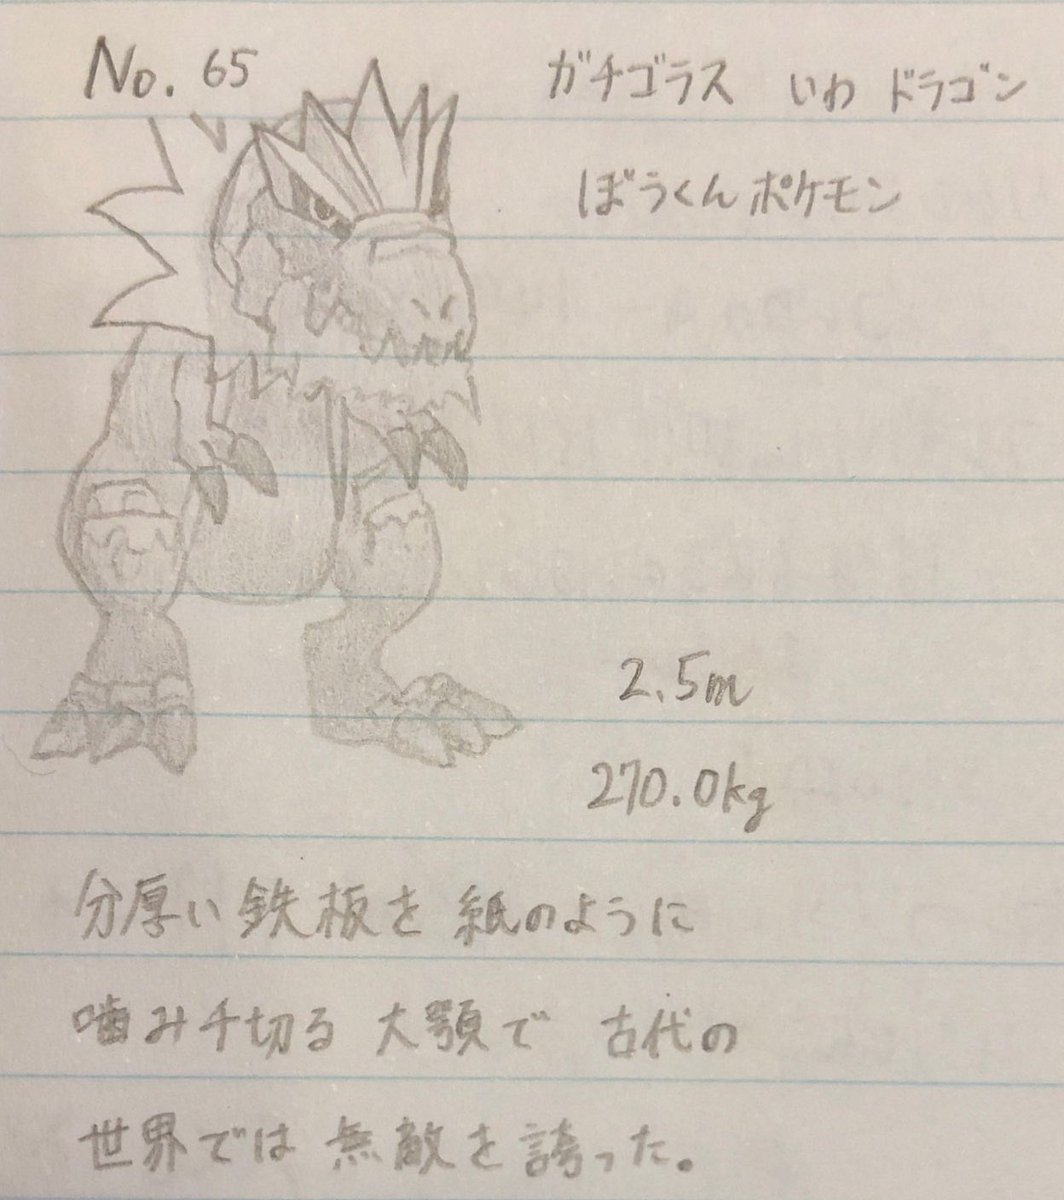 No. 65
ガチゴラス いわ ドラゴン
ぼうくんポケモン
2.5m
270.0kg
分厚い鉄板を 紙のように
噛み千切る 大顎で 古代の
世界では 無敵を誇った。